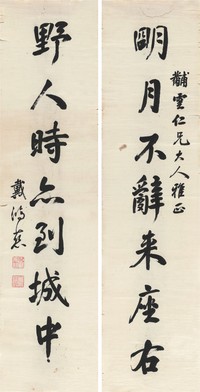 黼雲仁兄大人雅正
明月不辭来座右
野人時亦到城中
戴鴻慈